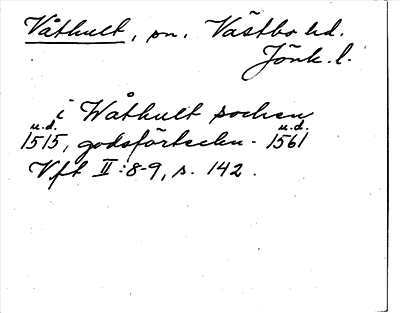 Våthult, sn. Västbo hd.
Jönk. l.
i Wåthult sochen
u.d. u.d.
1515, godsförteckn. 1561
Vft II:8-9, s. 142.